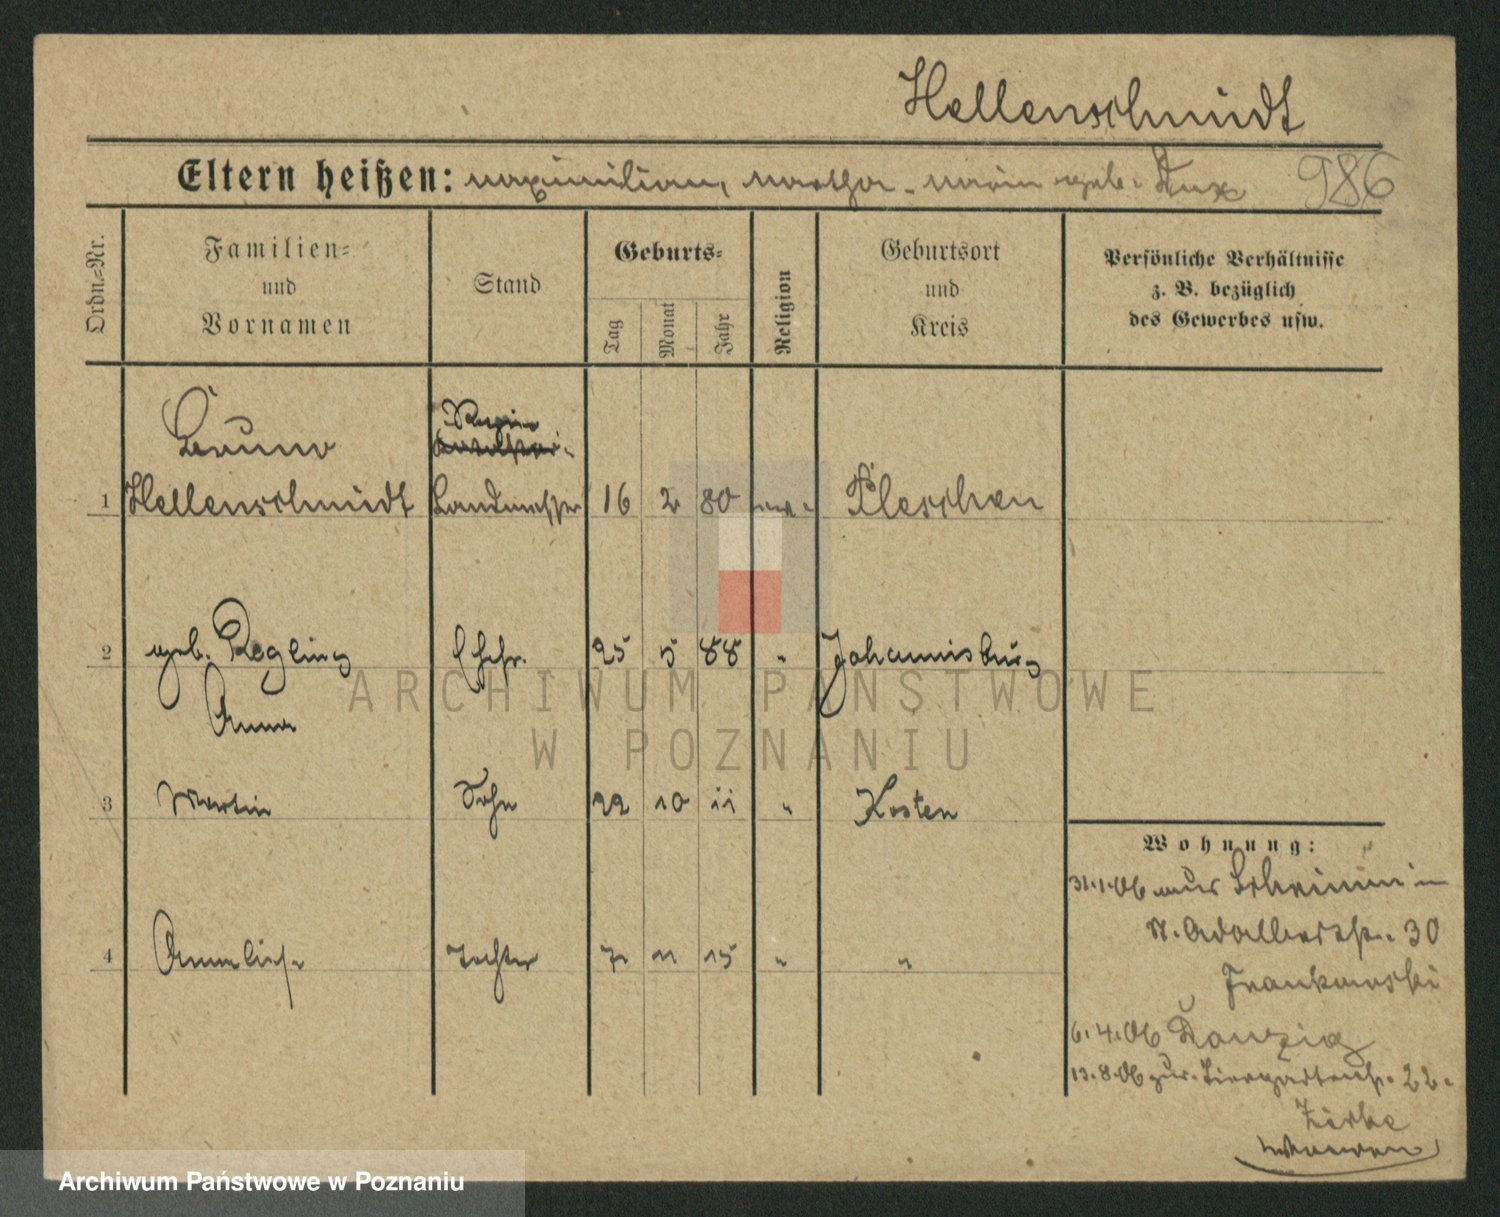 Hellenschmidt
Eltern heißen: Maximilian, Martha-Maria geb. Dux 986
Ordn.-Nr.
Familien=
und
Vornamen
Stand
Geburts=
Tag
Monat
Jahr
Religion
Geburtsort
und
Kreis
Persönliche Verhältnisse
z. B. bezüglich
des Gewerbes usw.
Bruno
1 Hellenschmidt Landmesser 16 2 80 Pleschen
2 geb. Regling Ehefr. 25 5 88 " Johannisburg
Anna
3 Martin Sohn 22 10 11 " Kosten
4 Anneliese Tochter 7 11 15 " "
Wohnung:
31.1.06 aus Schrimm in
St. Adalbertstr. 30
Frankowski
6.4.06 Danzig
13.8.06 zur. Tiergartenstr. 22.
Zirke
ARCHIWUM PAŃSTWOWE
W POZNANIU
Archiwum Państwowe w Poznaniu